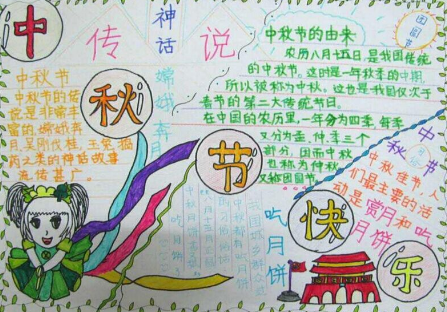 中
秋
节
快
乐
传
说
神
话
嫦
娥
奔
月
中秋节
中秋节的传
说是非常丰
富的,嫦娥奔
月,吴刚伐桂,玉兔捣
药之类的神话故事
流传甚广。
中秋节的由来
农历八月十五日是我国传统
的中秋节。这时是一年秋季的中期,
所以被称为中秋。这也是我国仅次于
春节的第二大传统节日。
在中国的农历里,一年分为四季,每季
又分为孟、仲、季三个
部分,因而中秋
也称为仲秋
又称团圆节
团圆
中
秋
节
中秋佳节,人
们最主要的活
动是赏月和吃
月饼
吃
月
饼
吃月饼